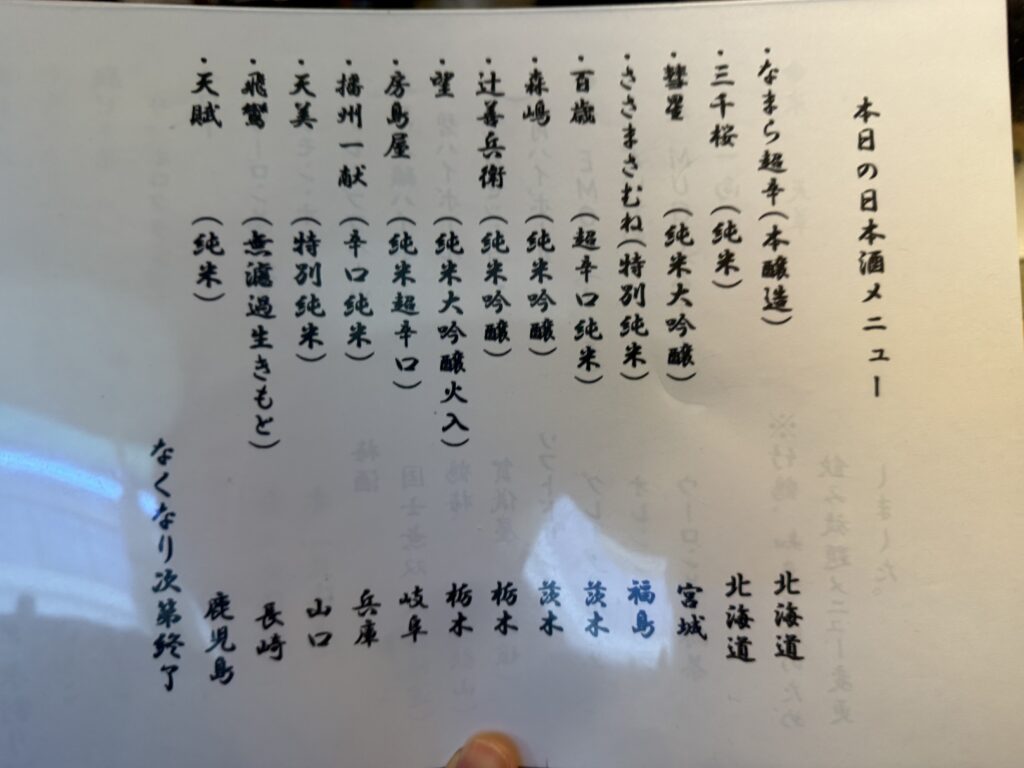 本日の日本酒メニュー
・なまら超辛(本醸造) 北海道
・三千桜 (純米) 北海道
・彗星 (純米大吟醸) 宮城
・ささまさむね(特別純米) 福島
・百歳 (超辛口純米) 茨木
・森嶋 (純米吟醸) 茨木
・辻善兵衛 (純米吟醸) 栃木
・望 (純米大吟醸火入) 栃木
・房島屋 (純米超辛口) 岐阜
・播州一献 (辛口純米) 兵庫
・天美 (特別純米) 山口
・飛鸞 (無濾過生きもと) 長崎
・天賦 (純米) 鹿児島
なくなり次第終了